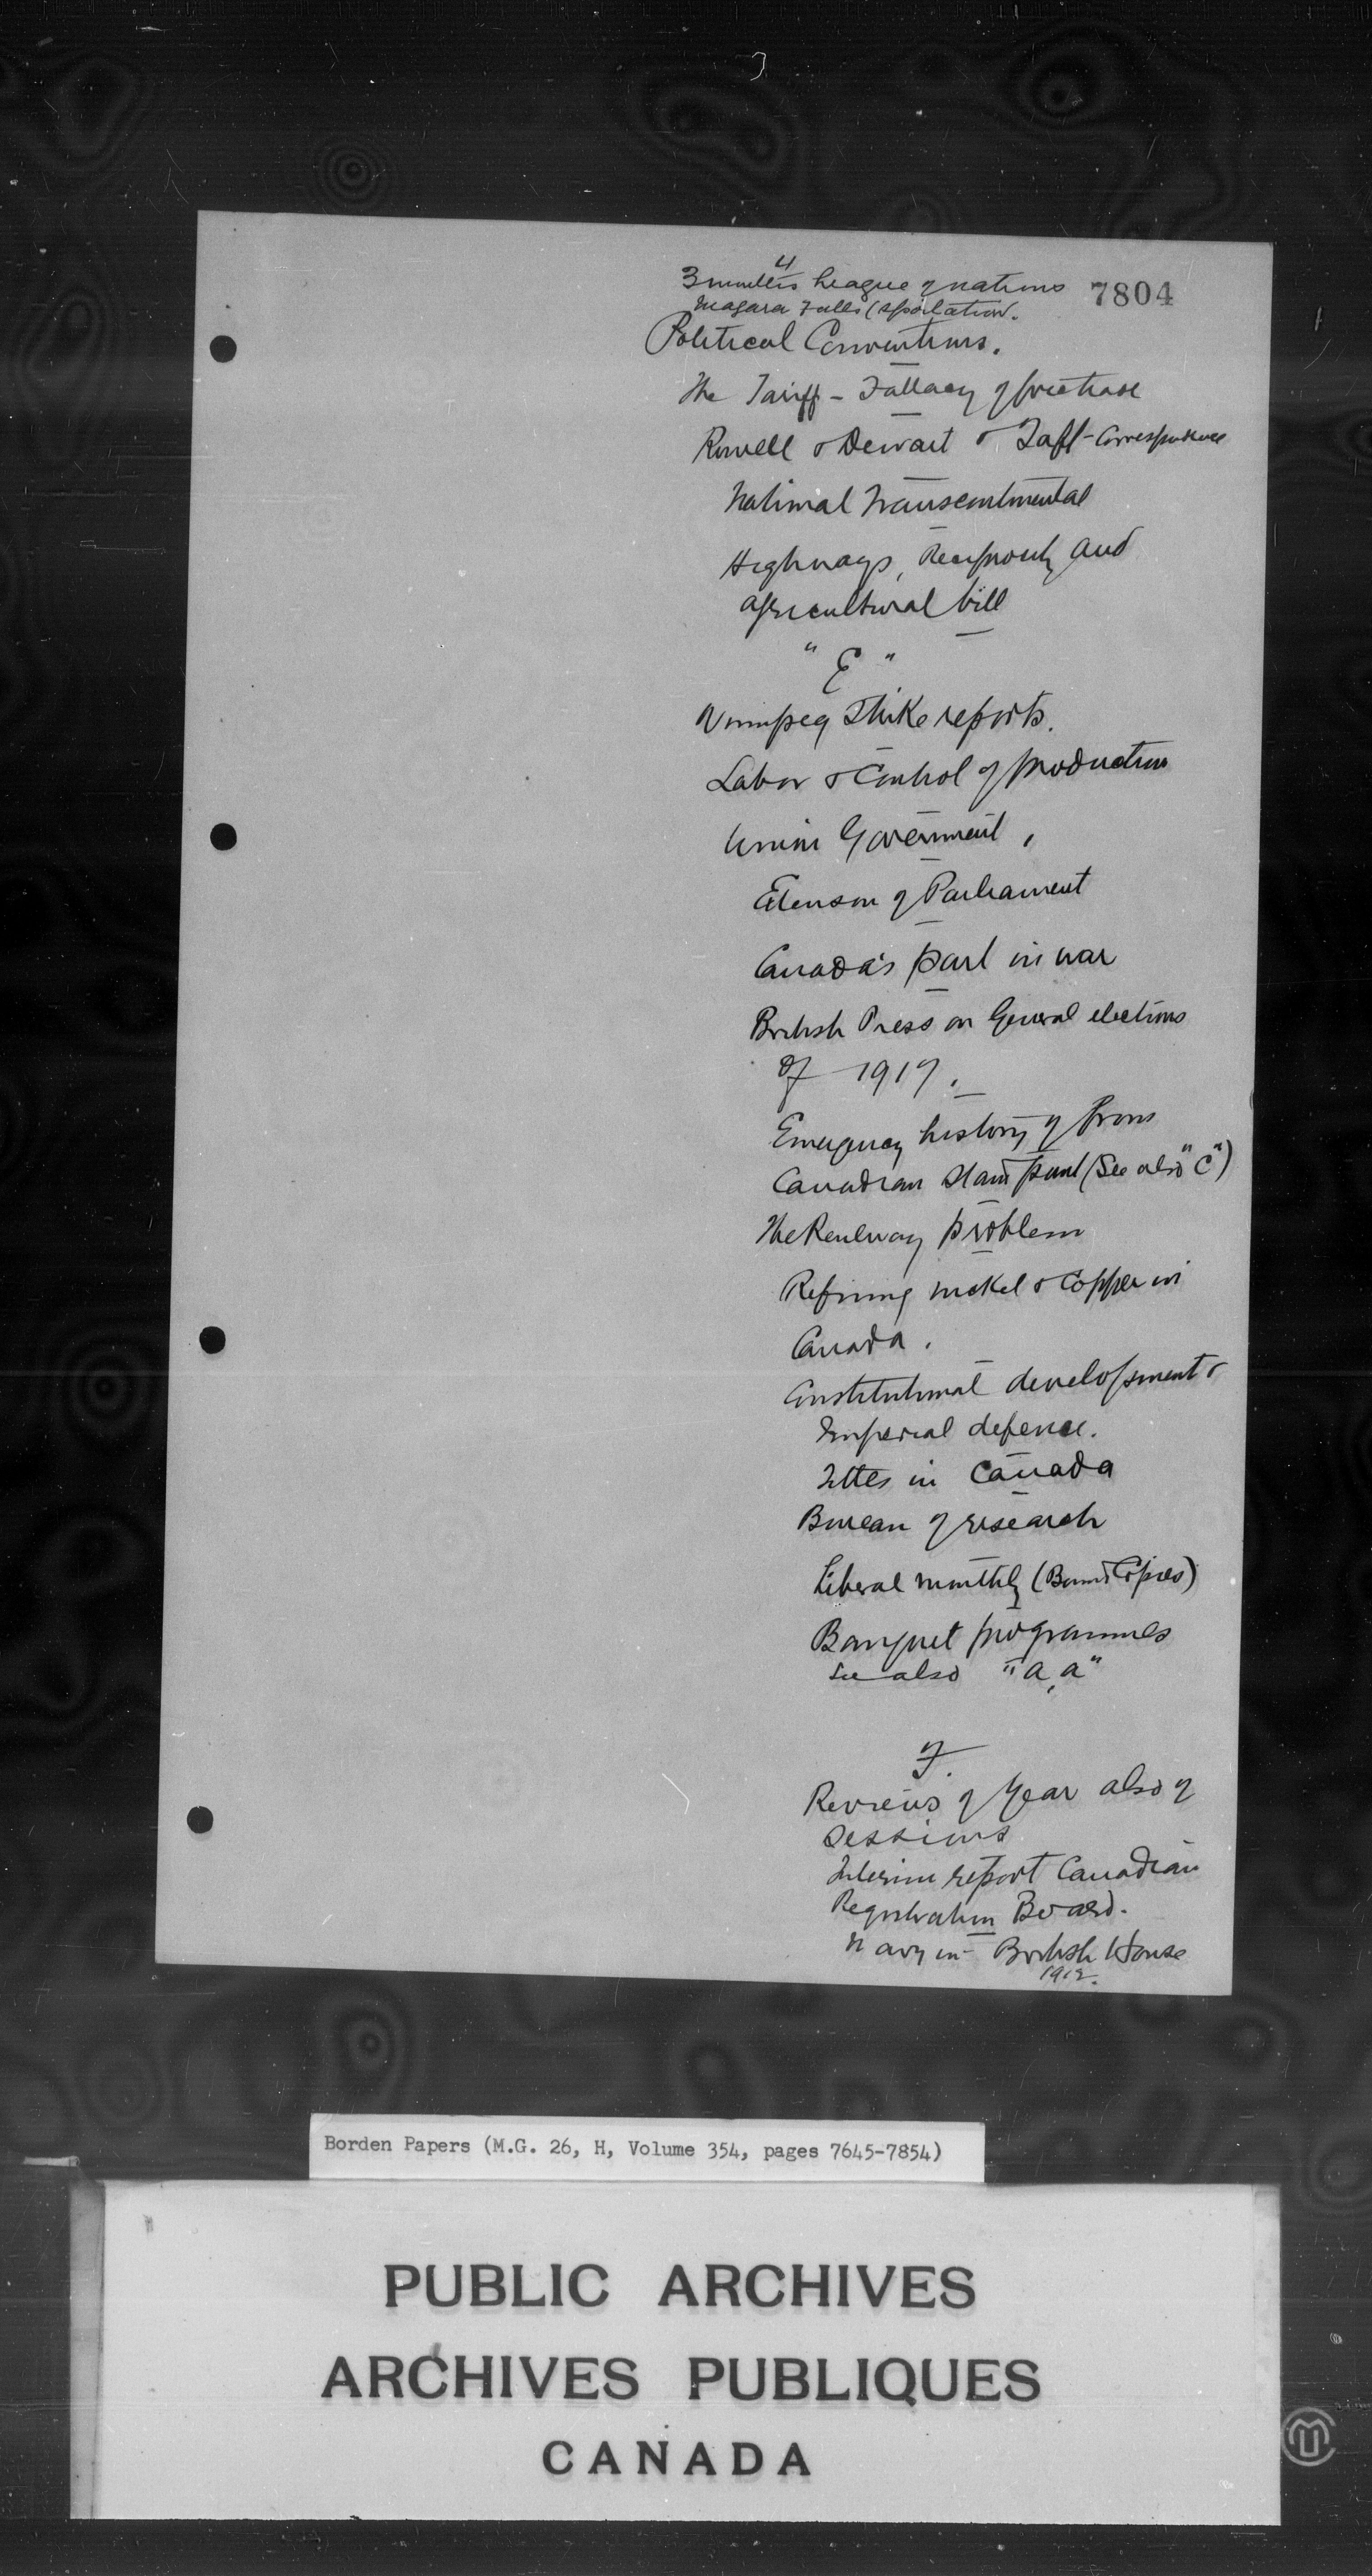 3
4
League of nations 7804
Niagara Falls (spoilation.
Political Conventions.
The Tariff - Fallacy of free trade
Rowell & Dewart & Taft - Correspondence
National Transcontinental
Highways, Reciprocity and
agricultural bill
"E"
Winnipeg Strike reports.
Labor & Control of production
Union Government,
Extenson of Parliament
Canada's part in war
British Press on General elections
of 1917.
Emergency history of
Canadian (See also "C")
The Railway problem
Refining nickel & Copper in
Canada.
Constitutional development &
Imperial defence.
Titles in Canada
Bureau of research
Liberal monthly (Bound Copies)
Banquet programmes
see also "a,a"
F.
Reviews of Year also of
Sessions
Interim report Canadian
Registration Board.
Navy in British House
1912.
Borden Papers (M.G. 26, H, Volume 354, pages 7645-7854)
PUBLIC ARCHIVES
ARCHIVES PUBLIQUES
CANADA